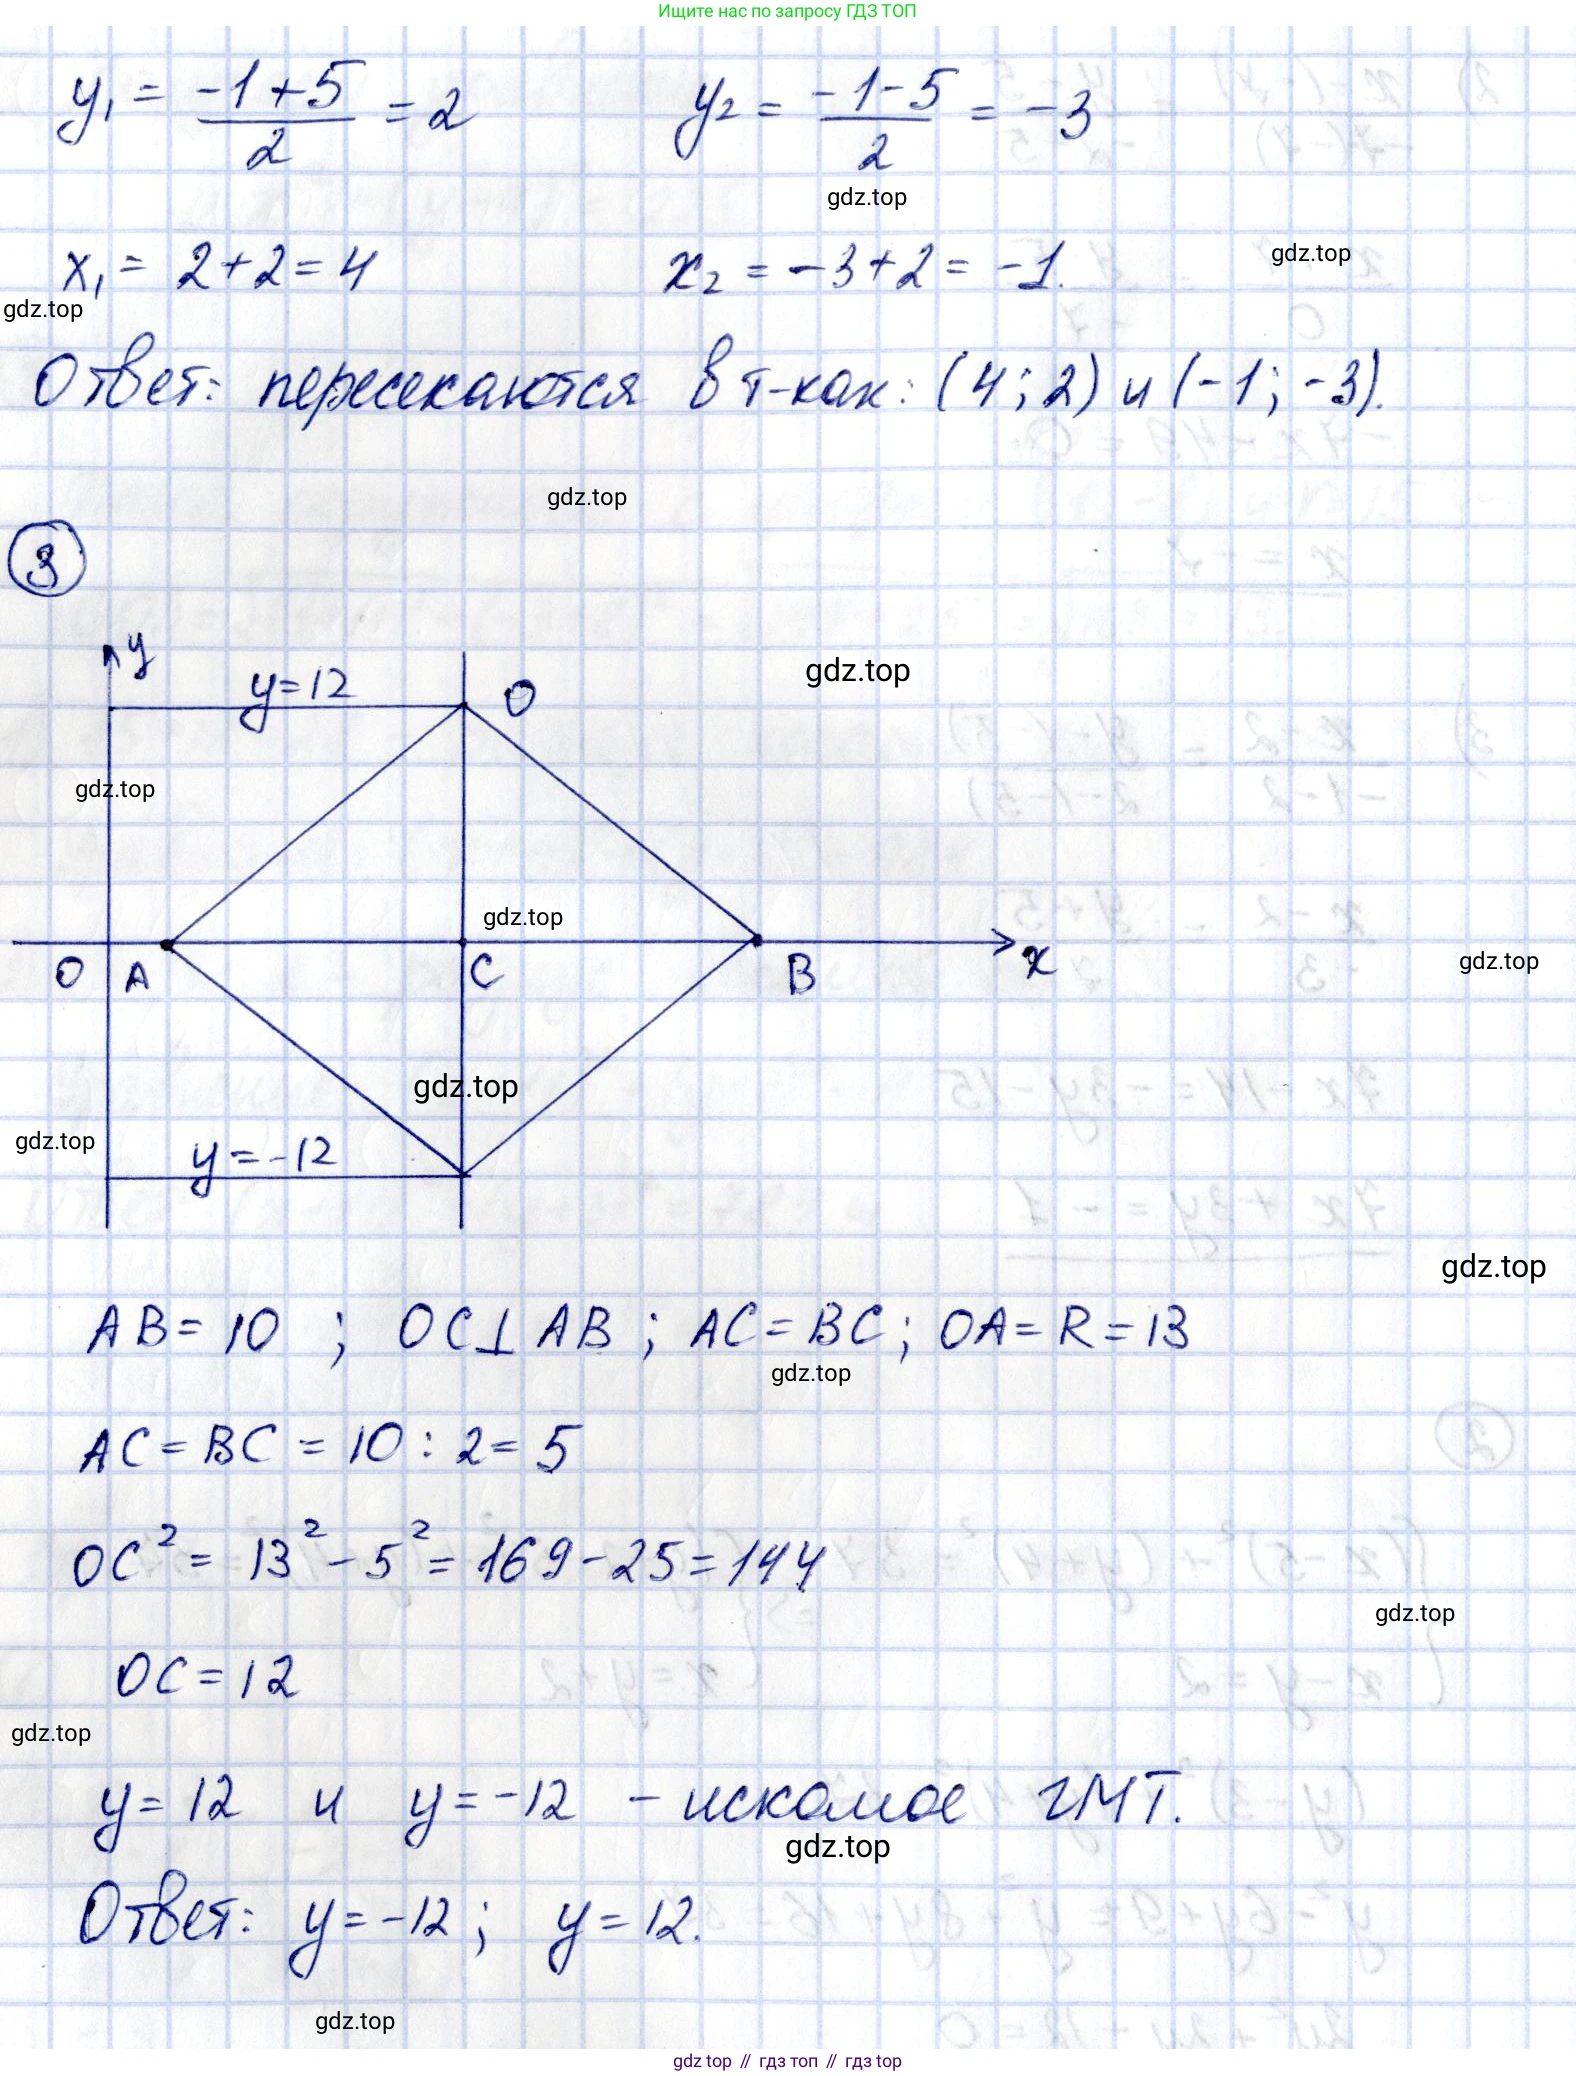 Ищите нас по запросу ГДЗ ТОП
y₁ = (-1+5)/2 = 2 y₂ = (-1-5)/2 = -3
gdz.top
x₁ = 2+2=4 x₂ = -3+2 = -1.
gdz.top
gdz.top
Ответ: пересекаются в т-ках: (4; 2) и (-1; -3).
gdz.top
3
y
y=12 O
gdz.top
gdz.top
gdz.top
O A C B x
gdz.top
gdz.top
gdz.top
y=-12
gdz.top
AB=10 ; OC⊥AB ; AC=BC; OA=R=13
gdz.top
AC=BC=10:2=5
OC² = 13²-5²=169-25=144
gdz.top
OC=12
gdz.top
y=12 и y=-12 - искомое ГМТ.
gdz.top
Ответ: y=-12; y=12.
gdz.top
gdz top // гдз топ // гдз top